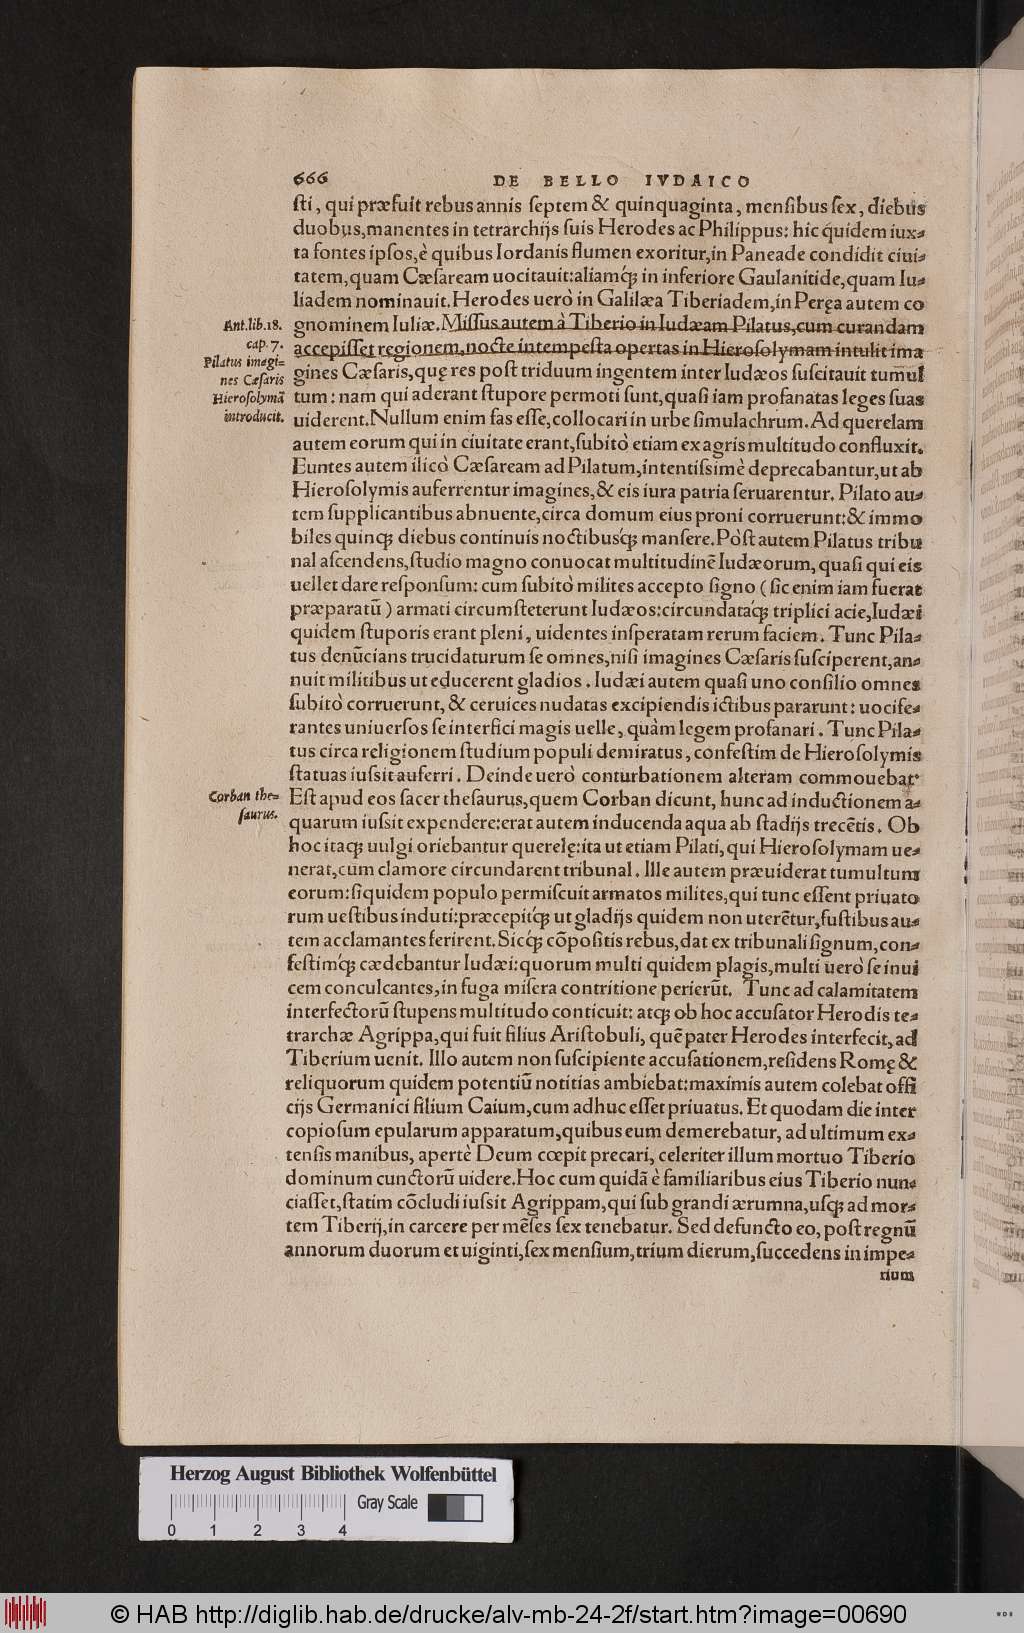 666 DE BELLO IVDAICO
ſti, qui præfuit rebus annis ſeptem & quinquaginta, menſibus ſex, diebus
duobus, manentes in tetrarchijs ſuis Herodes ac Philippus: hic quidem iux-
ta fontes ipſos, è quibus Iordanis flumen exoritur, in Paneade condidit ciui-
tatem, quam Cæſaream uocitauit: aliamq́ꝫ in inferiore Gaulanitide, quam Iu-
liadem nominauit. Herodes uerò in Galilæa Tiberiadem, in Peręa autem co
Ant. lib. 18. gnominem Iuliæ. Miſſus autem à Tiberio in Iudæam Pilatus, cum curandam
cap. 7. accepiſſet regionem, nocte intempeſta opertas in Hieroſolymam intulit ima
Pilatus imagi-
nes Cæſaris gines Cæſaris, quę res poſt triduum ingentem inter Iudæos ſuſcitauit tumul
Hieroſolymã tum: nam qui aderant ſtupore permoti ſunt, quaſi iam profanatas leges ſuas
introducit. uiderent. Nullum enim fas eſſe, collocari in urbe ſimulachrum. Ad querelam
autem eorum qui in ciuitate erant, ſubitò etiam ex agris multitudo confluxit.
Euntes autem ilicò Cæſaream ad Pilatum, intentiſsimè deprecabantur, ut ab
Hieroſolymis auferrentur imagines, & eis iura patria ſeruarentur. Pilato au-
tem ſupplicantibus abnuente, circa domum eius proni corruerunt: & immo
biles quinqꝫ diebus continuis noctibusq́ꝫ manſere. Pòſt autem Pilatus tribu
nal aſcendens, ſtudio magno conuocat multitudinẽ Iudæorum, quaſi qui eis
uellet dare reſponſum: cum ſubitò milites accepto ſigno (ſic enim iam fuerat
præparatũ) armati circumſteterunt Iudæos: circundataq́ꝫ triplici acie, Iudæi
quidem ſtuporis erant pleni, uidentes inſperatam rerum faciem. Tunc Pila-
tus denũcians trucidaturum ſe omnes, niſi imagines Cæſaris ſuſciperent, an-
nuit militibus ut educerent gladios. Iudæi autem quaſi uno conſilio omnes
ſubitò corruerunt, & ceruices nudatas excipiendis ictibus pararunt: uocife-
rantes uniuerſos ſe interfici magis uelle, quàm legem profanari. Tunc Pila-
tus circa religionem ſtudium populi demiratus, confeſtim de Hieroſolymis
ſtatuas iuſsit auferri. Deinde uerò conturbationem alteram commouebat.
Corban the- Eſt apud eos ſacer theſaurus, quem Corban dicunt, hunc ad inductionem a-
ſaurus. quarum iuſsit expendere: erat autem inducenda aqua ab ſtadijs trecẽtis. Ob
hoc itaqꝫ uulgi oriebantur querelę: ita ut etiam Pilati, qui Hieroſolymam ue-
nerat, cum clamore circundarent tribunal. Ille autem præuiderat tumultum
eorum: ſiquidem populo permiſcuit armatos milites, qui tunc eſſent priuato
rum ueſtibus induti: præcepitq́ꝫ ut gladijs quidem non uterẽtur, fuſtibus au-
tem acclamantes ferirent. Sicq́ꝫ cõpoſitis rebus, dat ex tribunali ſignum, con-
feſtimq́ꝫ cædebantur Iudæi: quorum multi quidem plagis, multi uerò ſe inui
cem conculcantes, in fuga miſera contritione perierũt. Tunc ad calamitatem
interfectorũ ſtupens multitudo conticuit: atqꝫ ob hoc accuſator Herodis te-
trarchæ Agrippa, qui fuit filius Ariſtobuli, quẽ pater Herodes interfecit, ad
Tiberium uenit. Illo autem non ſuſcipiente accuſationem, reſidens Romę &
reliquorum quidem potentiũ notitias ambiebat: maximis autem colebat offi
cijs Germanici filium Caium, cum adhuc eſſet priuatus. Et quodam die inter
copioſum epularum apparatum, quibus eum demerebatur, ad ultimum ex-
tenſis manibus, apertè Deum cœpit precari, celeriter illum mortuo Tiberio
dominum cunctorũ uidere. Hoc cum quidã è familiaribus eius Tiberio nun-
ciaſſet, ſtatim cõcludi iuſsit Agrippam, qui ſub grandi ærumna, uſqꝫ ad mor-
tem Tiberij, in carcere per mẽſes ſex tenebatur. Sed defuncto eo, poſt regnũ
annorum duorum et uiginti, ſex menſium, trium dierum, ſuccedens in impe-
rium
Herzog August Bibliothek Wolfenbüttel
Gray Scale
0 1 2 3 4
© HAB http://diglib.hab.de/drucke/alv-mb-24-2f/start.htm?image=00690